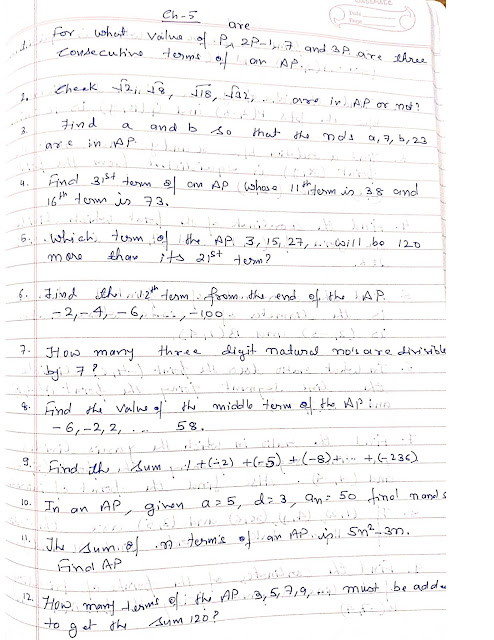 CLASSMATE
Date
Page
Ch-5
are
1. For what value of P, 2P-1, 7 and 3P are three
consecutive terms of an AP.
2. Check √2, √8, √18, √32, ... are in AP or not?
3. Find a and b so that the no's a, 7, b, 23
are in AP
4. Find 31st term of an AP whose 11th term is 38 and
16th term is 73.
5. Which term of the AP 3, 15, 27, ... will be 120
more than its 21st term?
6. Find the 12th term from the end of the AP
-2, -4, -6, ..., -100
7. How many three digit natural no's are divisible
by 7?
8. Find the value of the middle term of the AP:
-6, -2, 2, ... 58.
9. Find the sum 1+(-2)+(-5)+(-8)+...+(-236)
10. In an AP, given a=5, d=3, an=50 find n and S
11. The sum of n terms of an AP is 5n²-3n.
Find AP
12. How many terms of the AP 3, 5, 7, 9, ... must be adde
to get the sum 120?